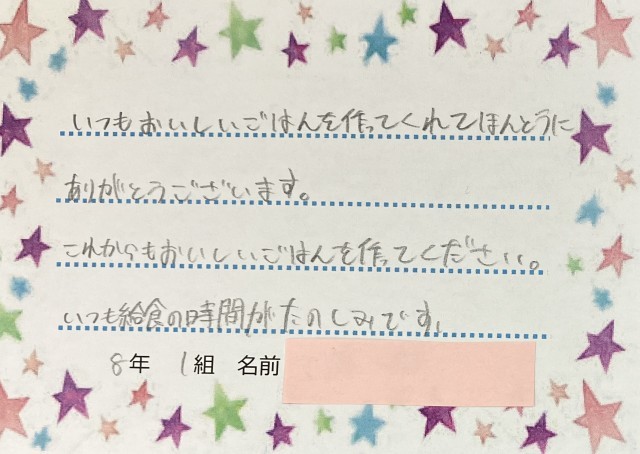 いつもおいしいごはんを作ってくれてほんとうに
ありがとうございます。
これからもおいしいごはんを作ってください。
いつも給食の時間がたのしみです。
8年 1組 名前